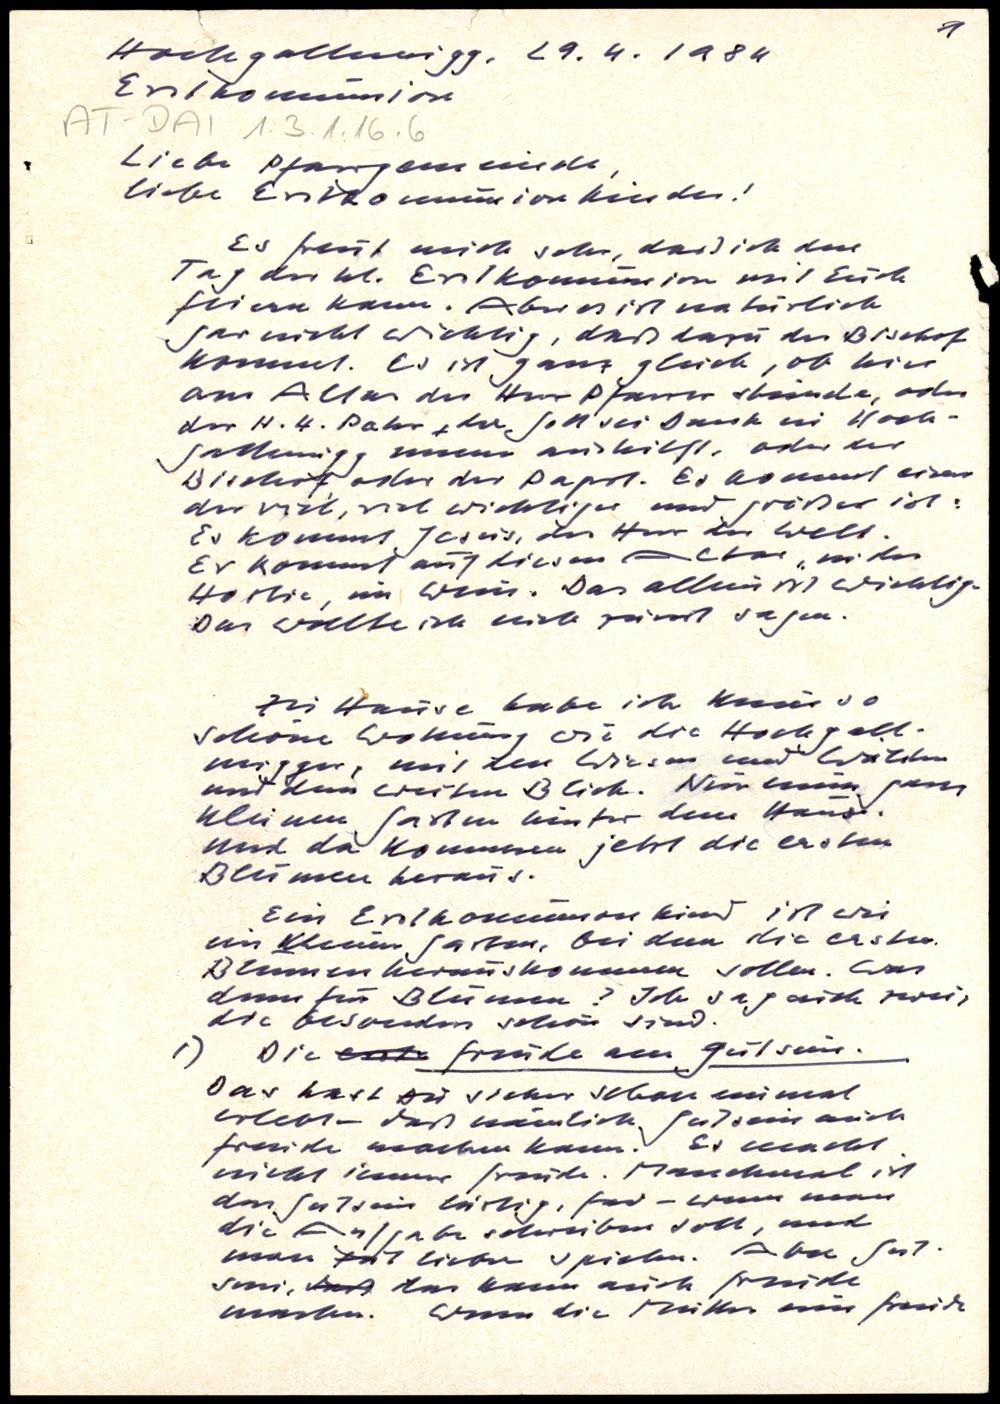 1
Hochgallmigg, 29. 4. 1984
Erstkommunion
AT-DAI 1.3.1.16.6
Liebe Pfarrgemeinde,
liebe Erstkommunionkinder!
Es freut mich sehr, daß ich den
Tag der hl. Erstkommunion mit Euch
feiern kann. Aber es ist natürlich
gar nicht wichtig, daß dazu der Bischof
kommt. Es ist ganz gleich, ob hier
am Altar der Herr Pfarrer stünde, oder
der H. H. Pater, der Gott sei Dank in Hoch-
gallmigg immer aushilft, oder der
Bischof oder der Papst. Es kommt einer
der viel, viel wichtiger und größer ist:
Es kommt Jesus, der Herr der Welt.
Er kommt auf diesen Altar, in der
Hostie, im Wein. Das allein ist wichtig.
Das wollte ich euch zuerst sagen.
Zu Hause habe ich keine so
schöne Wohnung wie die Hochgall-
migger, mit den Wiesen und Wäldern
und dem weiten Blick. Nur einen ganz
kleinen Garten hinter dem Haus.
Und da kommen jetzt die ersten
Blumen heraus.
Ein Erstkommunionkind ist wie
ein kleiner Garten, bei dem die ersten
Blumen herauskommen sollen. Was
denn für Blumen? Ich sag euch zwei,
die besonders schön sind.
1) Die erste Freude am Gutsein.
Das hast Du sicher schon einmal
erlebt – daß nämlich Gutsein auch
Freude machen kann. Es macht
nicht immer Freude. Manchmal ist
das Gutsein lästig, fad – wenn man
die Aufgabe schreiben soll, und
man tät lieber spielen. Aber Gut-
sein, das kann auch Freude
machen. Wenn die Mutter eine Freude